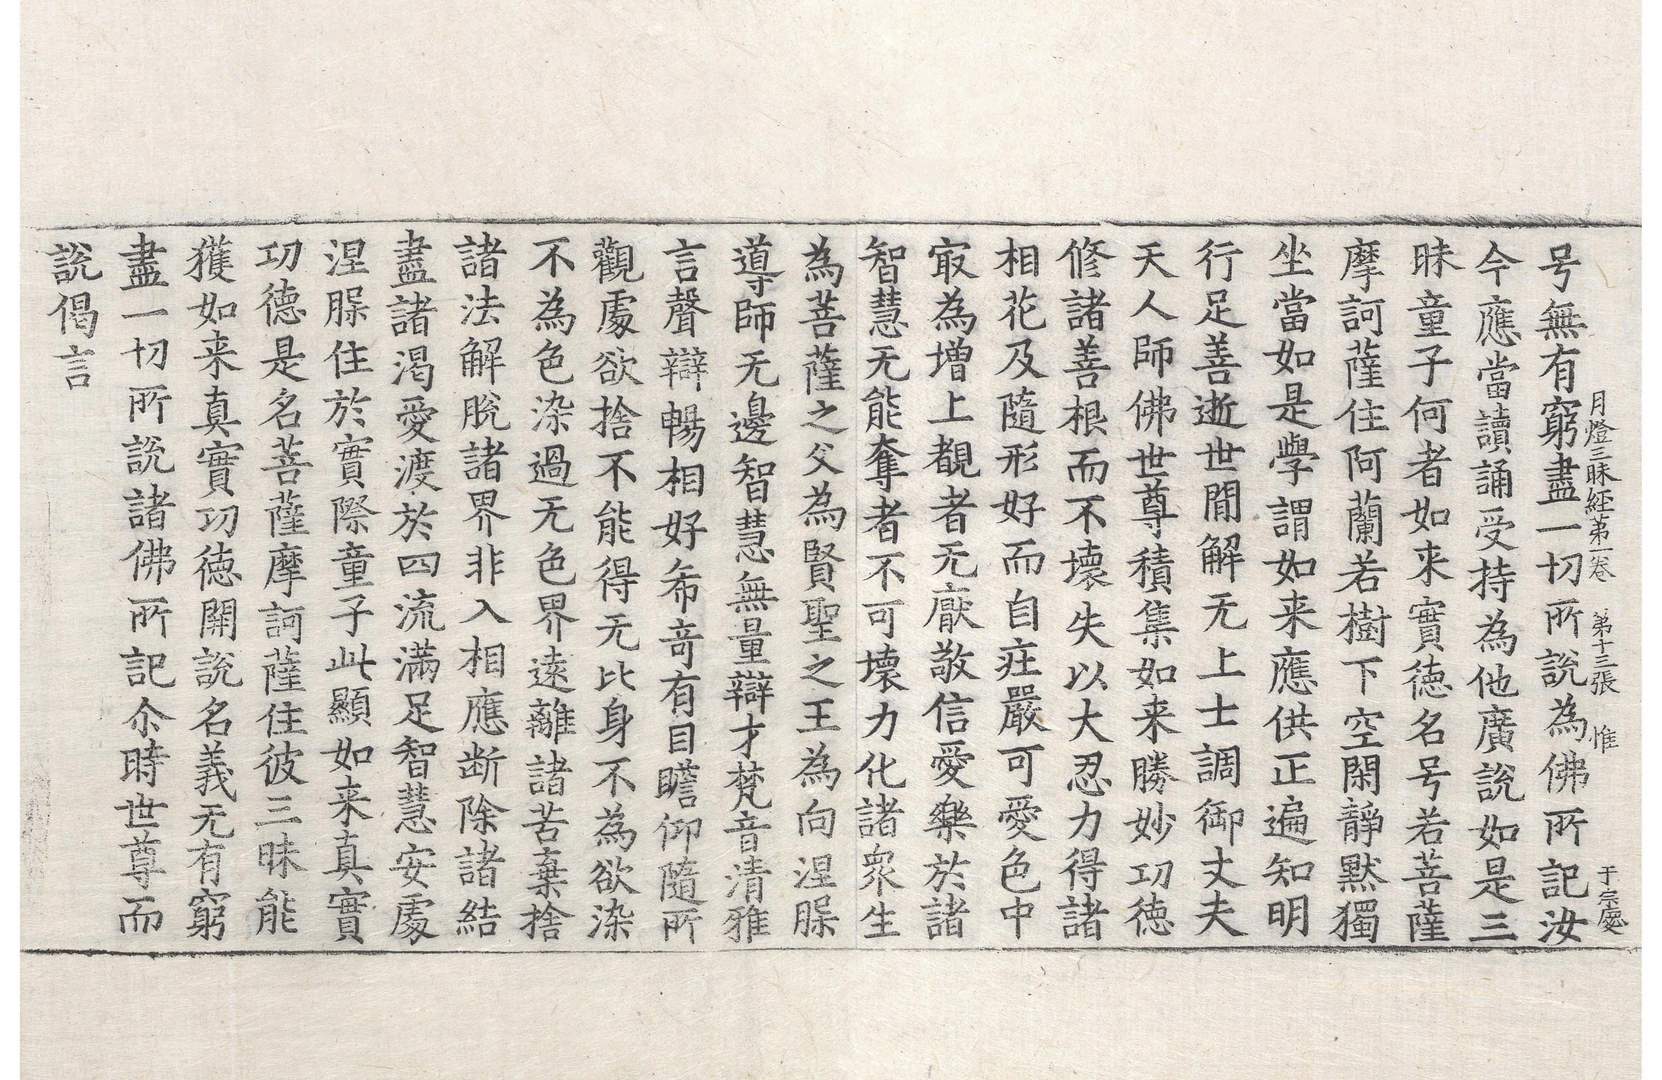 月燈三昧經第一卷 第十三張 惟 于宗慶
号無有窮盡一切所說為佛所記汝
今應當讀誦受持為他廣說如是三
昧童子何者如来實德名号若菩薩
摩訶薩住阿蘭若樹下空閑靜默獨
坐當如是學謂如来應供正遍知明
行足善逝世間解无上士調御丈夫
天人師佛世尊積集如来勝妙功德
修諸善根而不壞失以大忍力得諸
相花及隨形好而自庄嚴可愛色中
㝡為增上覩者无猒敬信愛樂於諸
智慧无能奪者不可壞力化諸衆生
為菩薩之父為賢聖之王為向涅䏶
導師无邊智慧無量辯才梵音清雅
言聲辯暢相好希奇有目瞻仰隨所
觀處欲捨不能得无比身不為欲染
不為色染過无色界遠離諸苦棄捨
諸法解脫諸界非入相應断除諸結
盡諸渴愛渡於四流滿足智慧安處
涅䏶住於實際童子此顯如来真實
功德是名菩薩摩訶薩住彼三昧能
獲如来真實功德開說名義无有窮
盡一切所說諸佛所記尒時世尊而
說偈言